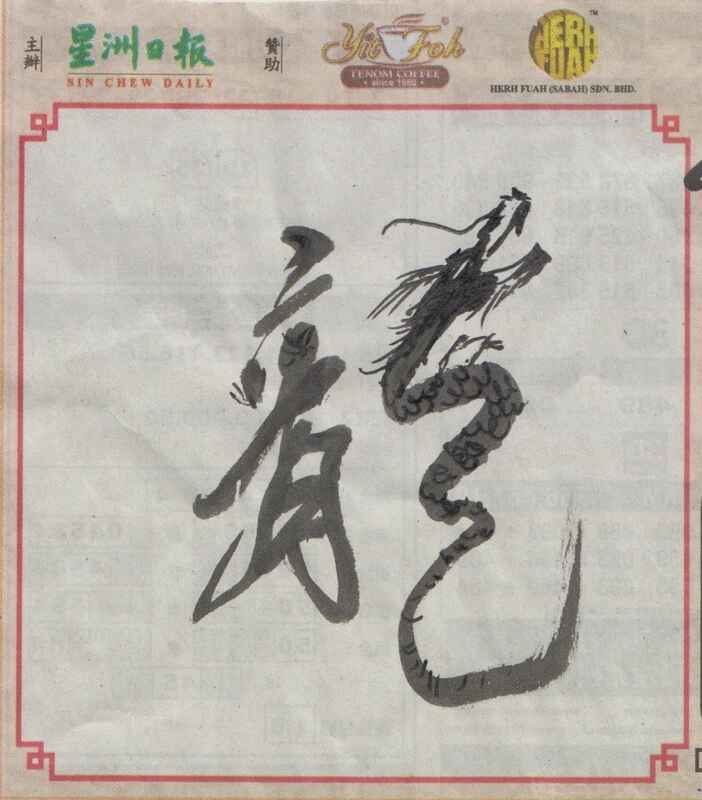 主辦 星洲日報 贊助 Yit Foh HERH FUAH ™
SIN CHEW DAILY TENOM COFFEE
• since 1960 •
HERH FUAH (SABAH) SDN. BHD.
龍